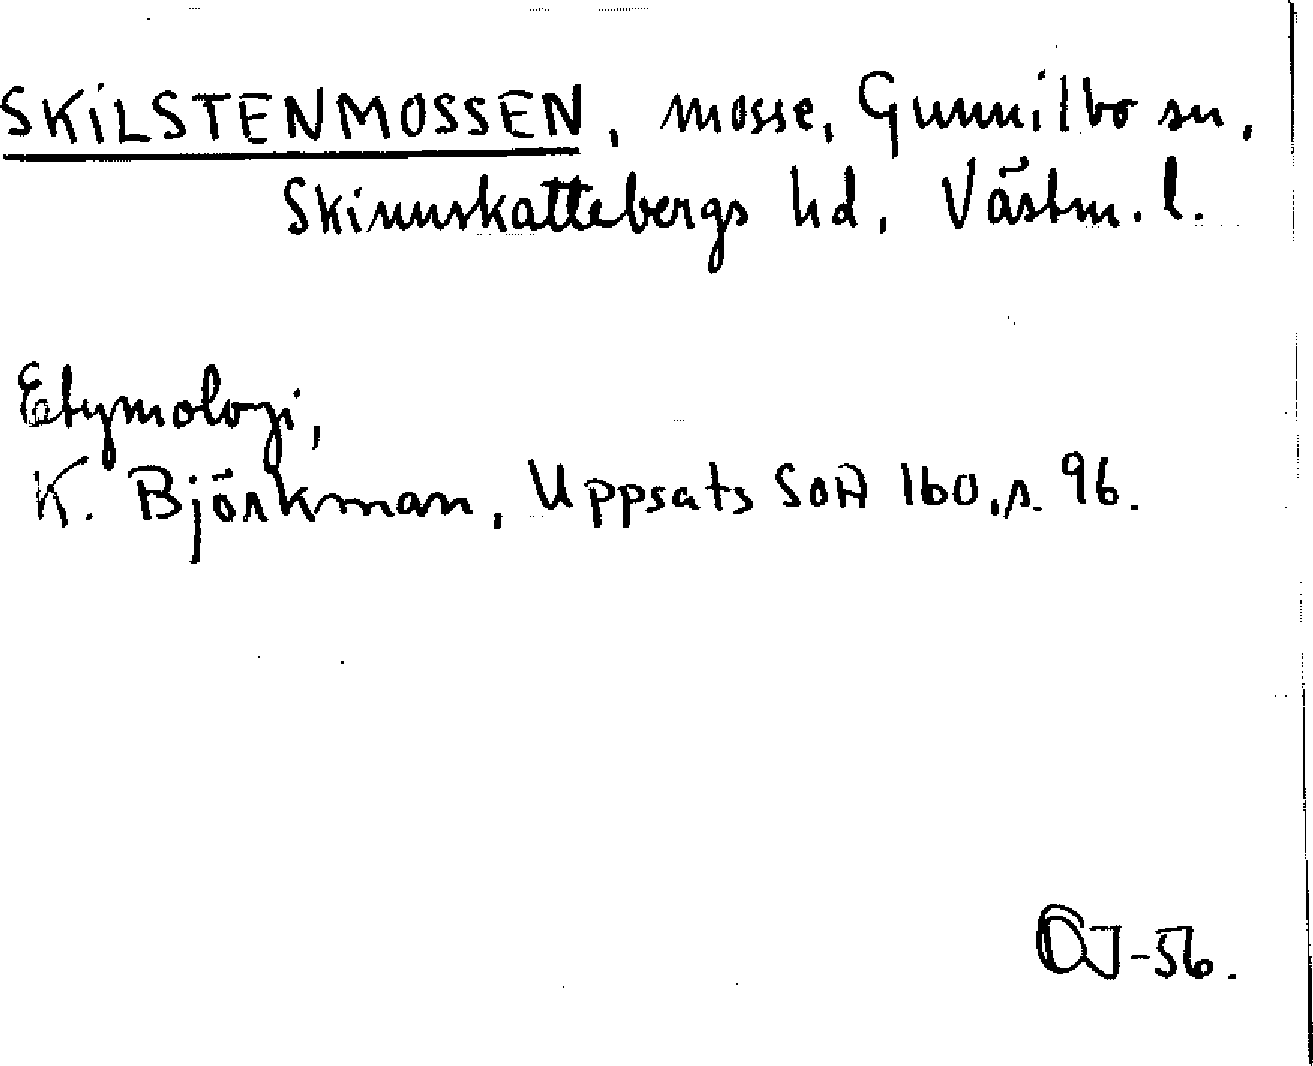 SKILSTENMOSSEN, mosse, Gunnilbo sn,
Skinnskattebergs hd, Västm. l.
Etymologi,
K. Björkman, Uppsats SOA 160, s. 96.
OJ-56.